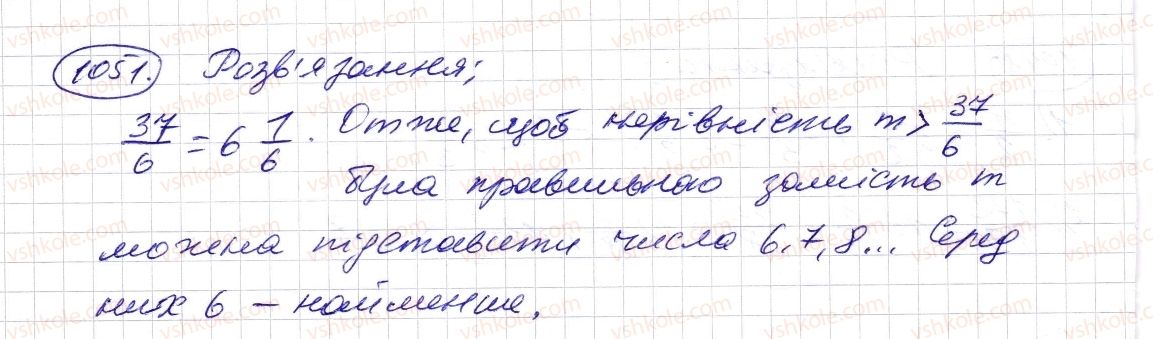 1051. Розв'язання;
37/6 = 6 1/6. Отже, щоб нерівність m > 37/6
була правильною замість m
можна підставити числа 6,7,8... Серед
них 6 – найменше.